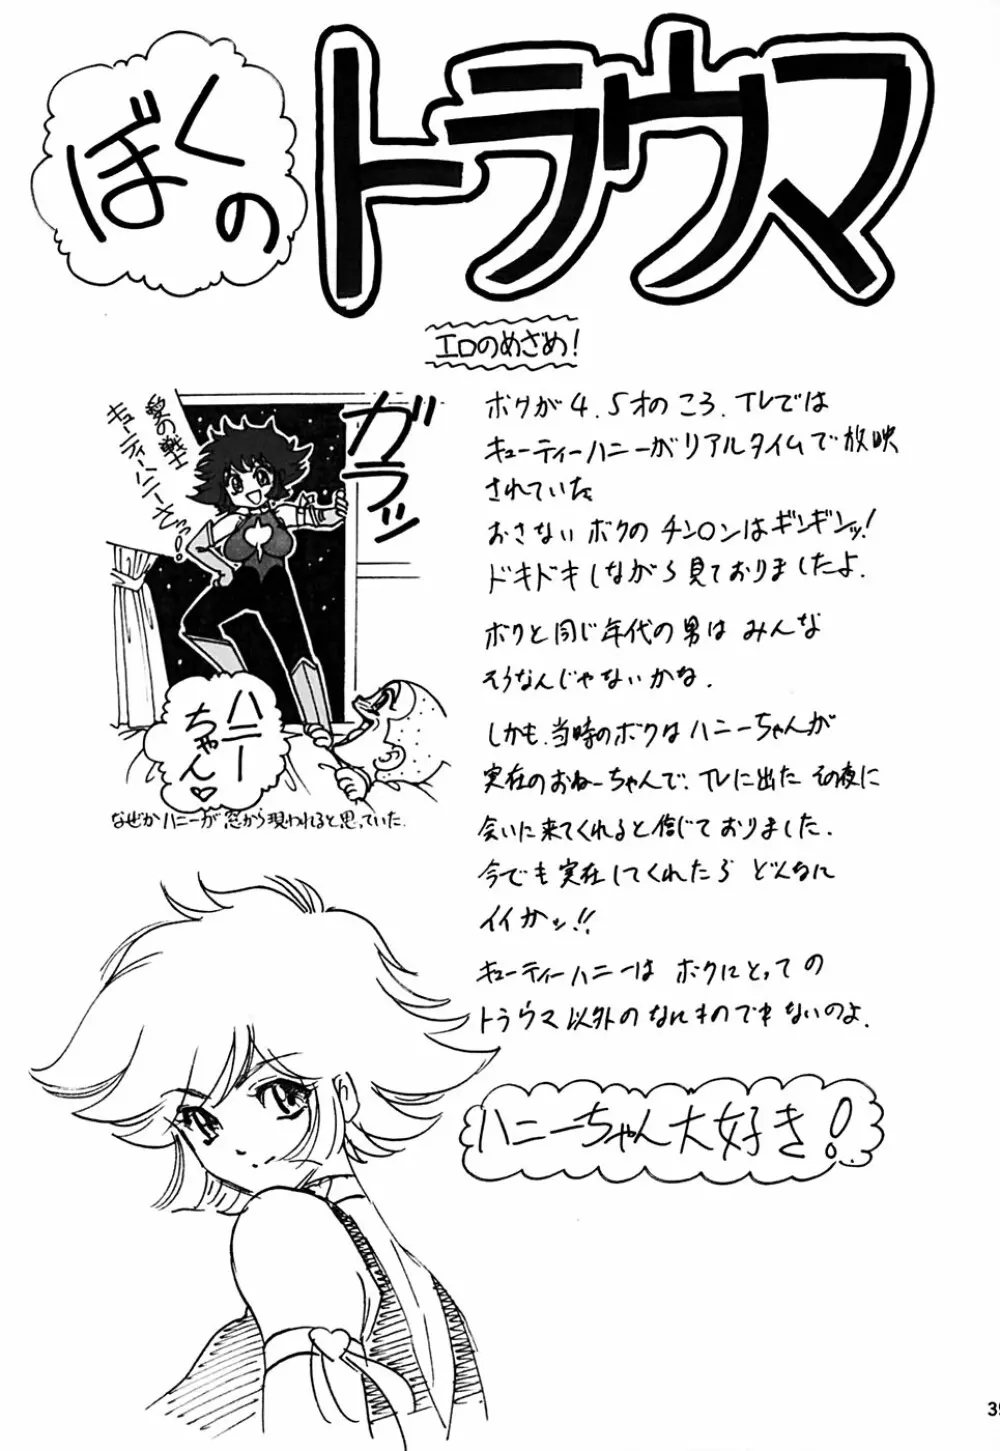 ぼくの
トラウマ
エロのめざめ!
愛の戦士
キューティーハニーさっ!
ガラッ
ハニー
ちゃん♡
なぜかハニーが窓から現われると思っていた.
ボクが4.5才のころ.TVでは
キューティーハニーがリアルタイムで放映
されていた
ドキドキしながら見ておりましたよ.
ボクと同じ年代の男はみんな
そうなんじゃないかな.
しかも.当時のボクはハニーちゃんが
実在のおねーちゃんで、TVに出たその夜に
会いに来てくれると信じておりました.
今でも実在してくれたらどんなに
イイかッ!!
キューティーハニーはボクにとっての
トラウマ以外のなにものでもないのよ.
ハニーちゃん大好き!